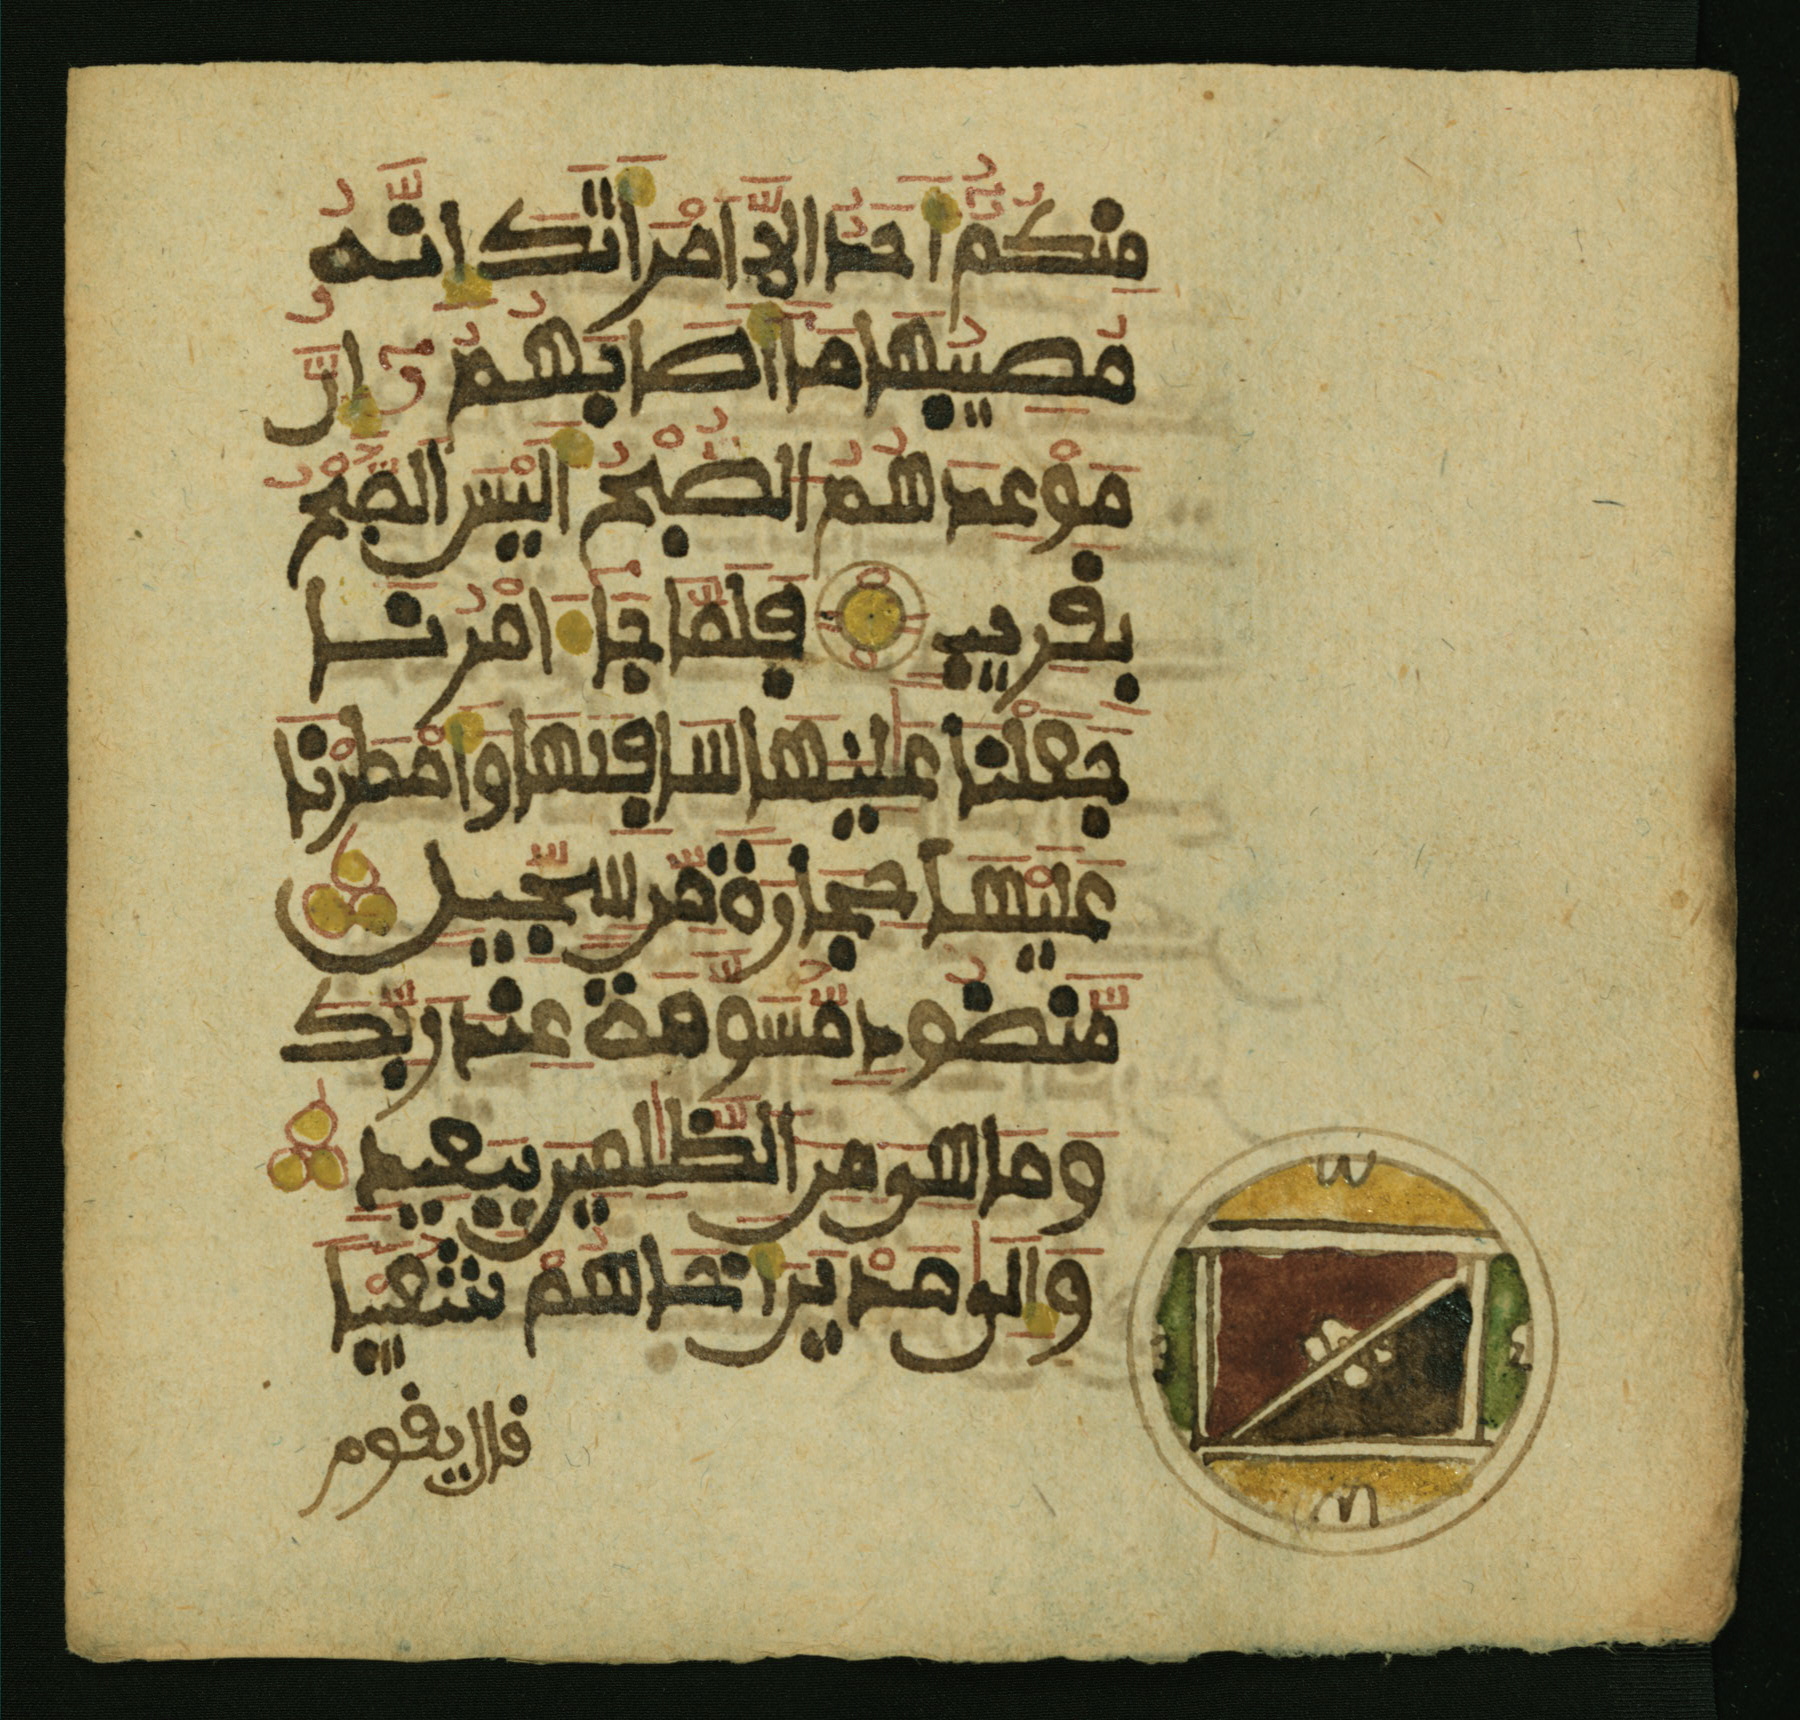 مِنكُمُۥٓ أَحَدٌ اِلَّا اَمْرَأَتَكَ إِنَّهُۥ
مُصِيبُهَا مَآ أَصَابَهُمُۥٓ إِنَّ
مَوْعِدَهُمُ الصُّبْحُ أَلَيْسَ الصُّبْحُ
بِقَرِيبٍ فَلَمَّا جَآءَ امْرُنَا
جَعَلْنَا عَٰلِيَهَا سَافِلَهَا وَأَمْطَرْنَا
عَلَيْهَا حِجَارَةً مِّن سِجِّيلٍ
مَّنضُودٍ مُّسَوَّمَةً عِندَ رَبِّكَ
وَمَا هِىَ مِنَ الظَّٰلِمِينَ بِبَعِيدٍ
وَإِلَىٰ مَدْيَنَ أَخَاهُمْ شُعَيْبًا
قال يقوم